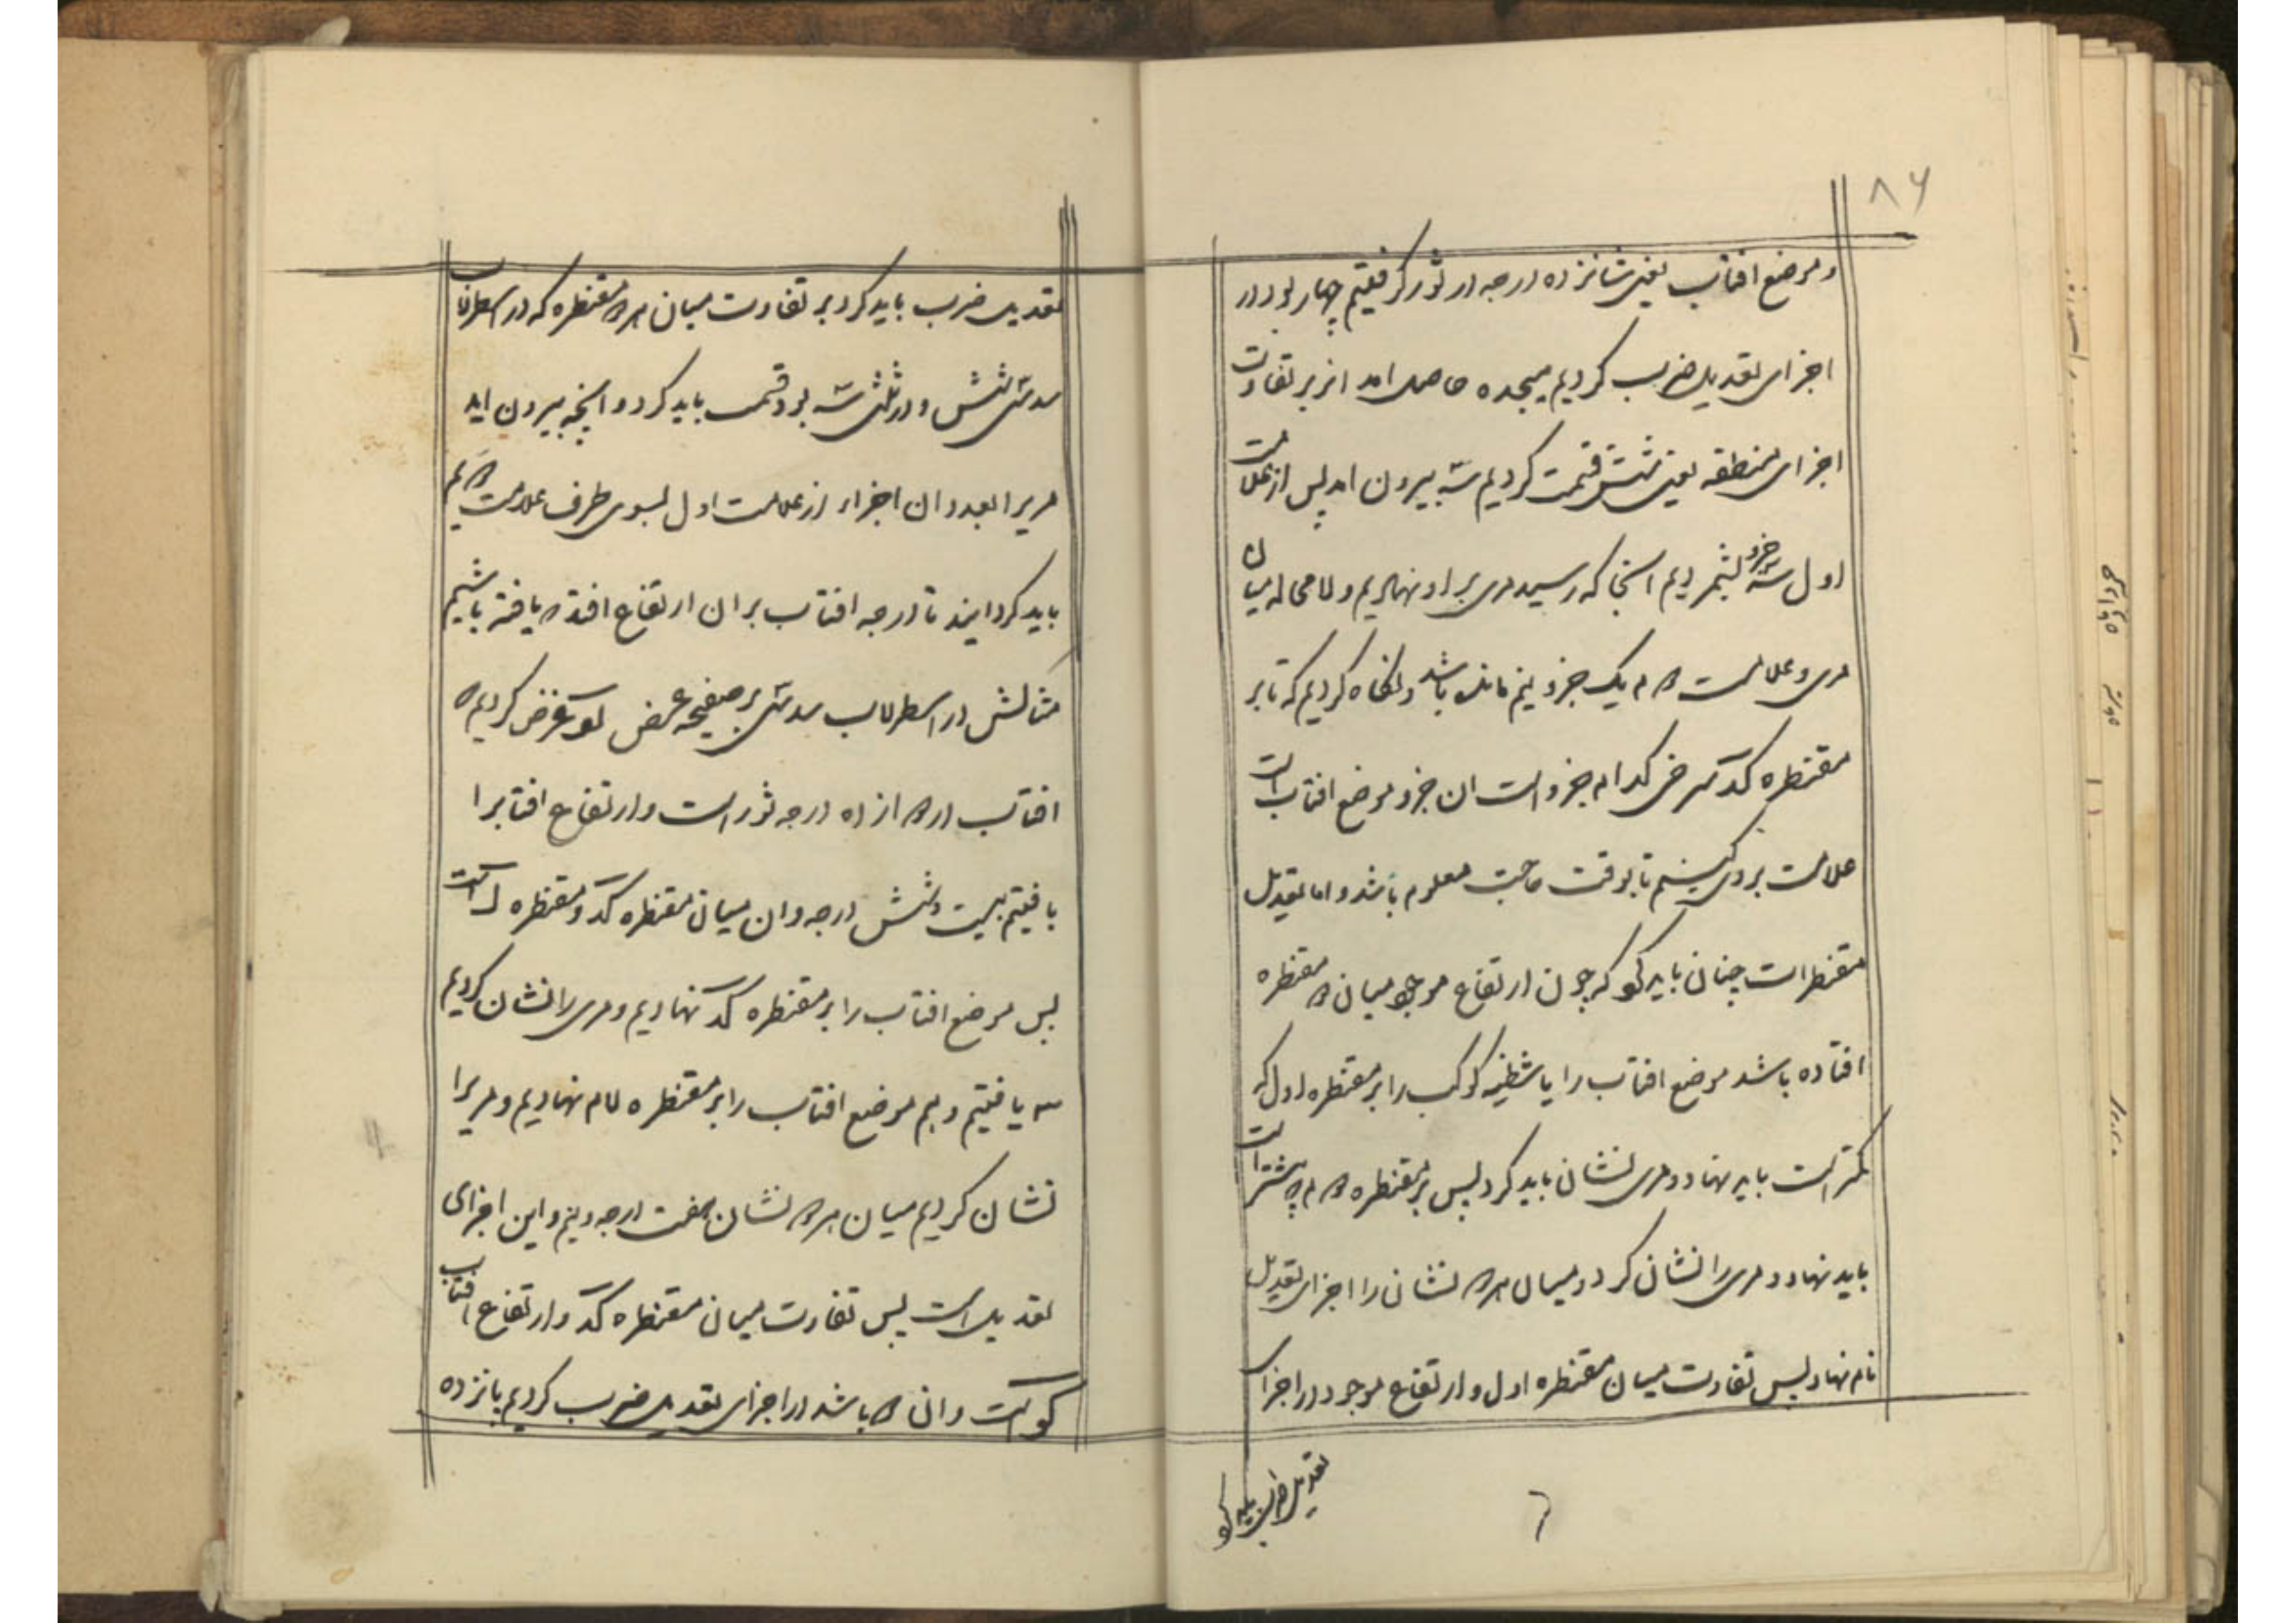 ۸۶
و موضع افتاب یعنی شانزده درجه در ثور گرفتیم چهار بود در
اجزای تعدیل ضرب کردیم هیجده حاصل امد انرا بر تفاوت
اجزای منطقه یعنی شش قسمت کردیم سه بیرون امد پس از علامت
اول سه جزو بشمردیم انجا که رسید مری بر او نهادیم و لامحاله میان
مری و علامت دوم یک جزو و نیم مانده باشد و نگاه کردیم که تا بر
مقنطره کد شرقی کدام جزو است ان جزو موضع افتاب است
علامت بر وی کنیم تا بوقت حاجت معلوم باشد و اما تعدیل
مقنطرات چنان باید کرد که چون ارتفاع موجود میان دو مقنطره
افتاده باشد موضع افتاب را یا شظیه کوکب را بر مقنطره اول که
کمتر است باید نهاد و مری نشان باید کرد پس بر مقنطره دوم که بیشتر است
باید نهاد و مری را نشان کرد و میان هر دو نشان را اجزای تعدیل
نام نهاد پس تفاوت میان مقنطره اول و ارتفاع موجود در اجزای
تعدیل ضرب باید کرد
تعدیل ضرب باید کرد بر تفاوت میان هر دو مقنطره که در اسطرلاب
سدسی شش و در ثلثی سه بود قسمت باید کرد و انچه بیرون اید
مریرا بعدد ان اجزاء از علامت اول بسوی طرف علامت دوم
باید گردانید تا درجه افتاب بر ان ارتفاع افتد که یافته باشیم
مثالش در اسطرلاب سدسی بر صفیحه عرض لو فرض کردیم که
افتاب در دوازده درجه ثور است و ارتفاع افتابرا
یافتیم بیست و شش درجه و ان میان مقنطره کد و مقنطره ل است
پس موضع افتاب را بر مقنطره کد نهادیم و مری را نشان کردیم
سه یافتیم و هم موضع افتاب را بر مقنطره لام نهادیم و مریرا
نشان کردیم میان هر دو نشان هفت درجه و نیم و این اجزای
تعدیل است پس تفاوت میان مقنطره کد و ارتفاع افتاب
کو است و ان دو باشد در اجزای تعدیل ضرب کردیم پانزده